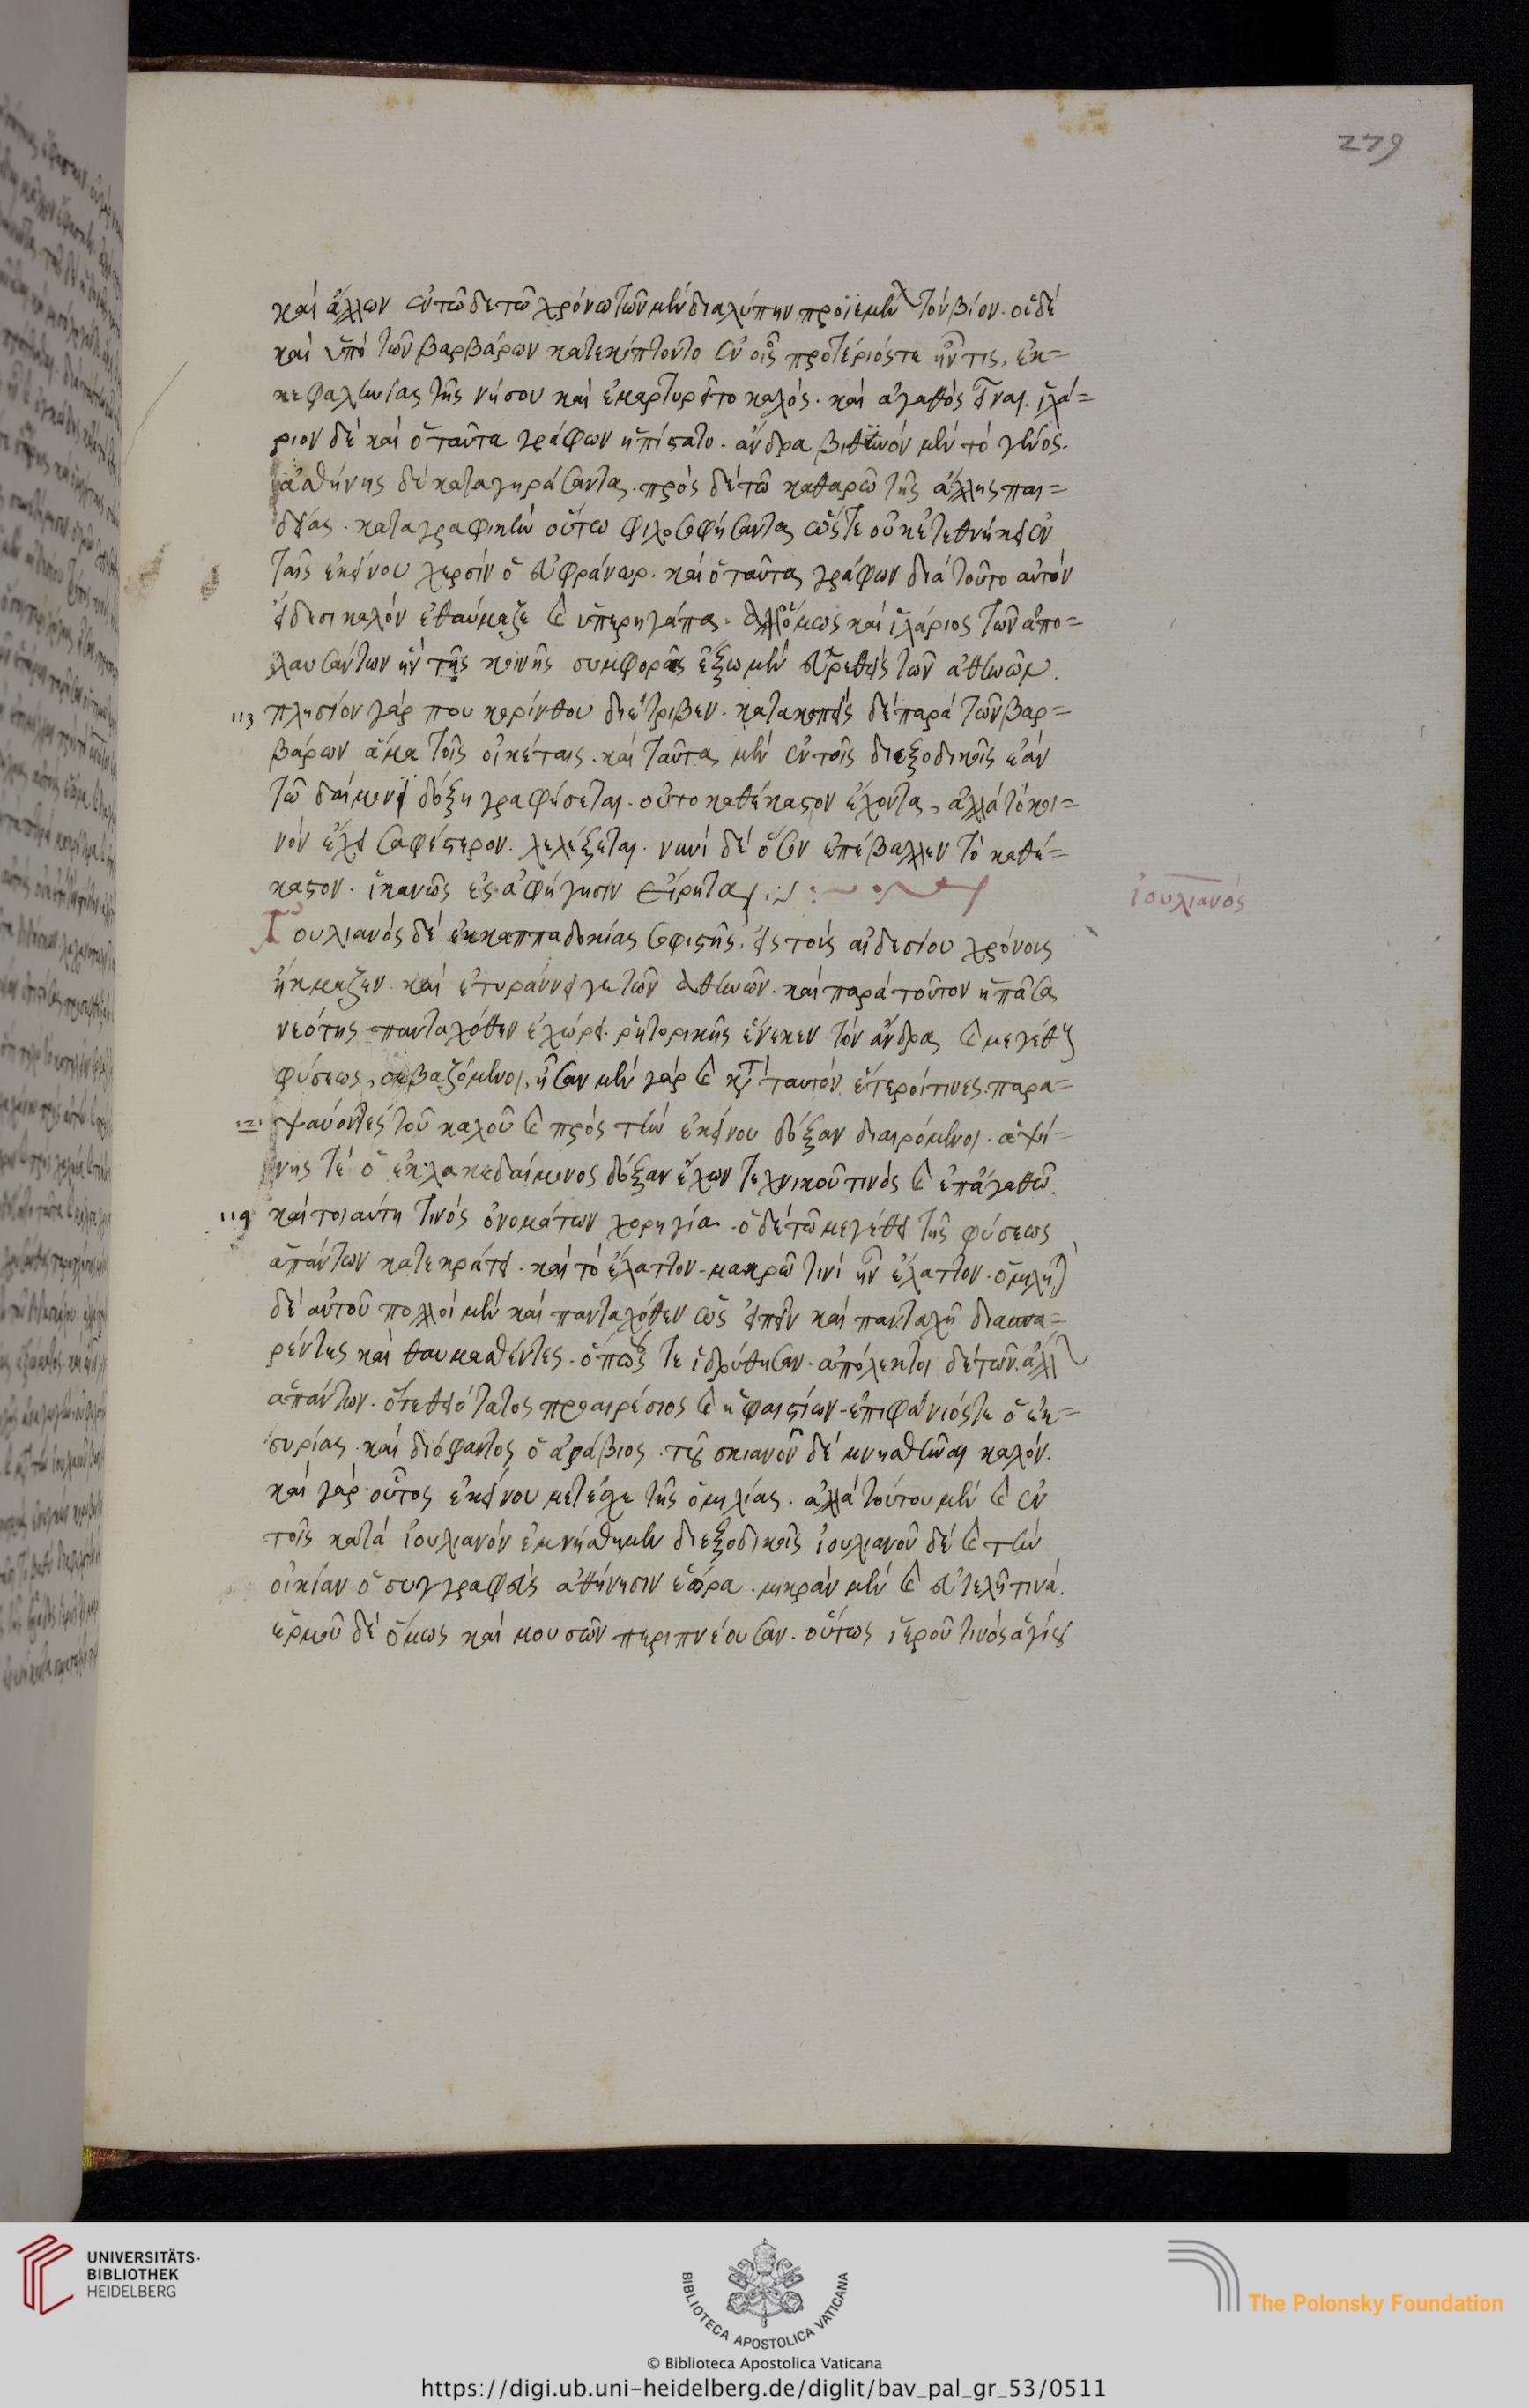 279
καὶ ἄλλων ἐν τῶδε τῶ χρόνω τῶν μὲν διὰ λύπην προϊεμένων τὸν βίον. οἱ δὲ
καὶ ὑπὸ τῶν βαρβάρων κατεκόπτοντο ἐν οἷς προτέριός τε ἦν τις, ἐκ=
κεφαληνίας τῆς νήσου καὶ ἐμαρτυρεῖτο καλὸς. καὶ ἀγαθὸς εἶναι. ἱλά=
ριον δὲ καὶ ὁ ταῦτα γράφων ἠπίστατο. ἄνδρα βιθυνὸν μὲν τὸ γένος.
ἀθήνης δὲ καταγηράσαντα. πρὸς δὲ τῶ καθαρῶ τῆς ἄλλης παι=
δείας. καταγραφικὴν οὕτω φιλοσοφήσαντα ὥστε οὐκ ἐτεθνήκει ἐν
ταῖς ἐκείνου χερσὶν ὁ εὐφράνωρ. καὶ ὁ ταῦτα γράφων διὰ τοῦτο αὐτὸν
εἴδεσι καλὸν ἐθαύμαζε καὶ ὑπερηγάπα. ἀλλ' ὅμως καὶ ἱλάριος τῶν ἀπο=
λαυσάντων ἦν τῆς κοινῆς συμφορᾶς ἔξω μὲν εὑρεθεὶς τῶν ἀθηνῶν.
113 πλησίον γάρ που κορίνθου διέτριβεν. κατακοπεὶς δὲ παρὰ τῶν βαρ=
βάρων ἅμα τοῖς οἰκέταις. καὶ ταῦτα μὲν ἐν τοῖς διεξοδικοῖς ἐὰν
τῶ δαίμονι δόξη γραφήσεται. οὐ τὸ καθέκαστον ἔχοντα, ἀλλὰ τὸ κοι=
νὸν ἐκεῖ σαφέστερον. λελέξεται. νυνὶ δὲ ὅσον ἐπέβαλλεν τὸ καθέ=
καστον. ἱκανῶς ἐς ἀφήγησιν εἴρηται
ἰουλιανός
Ἰουλιανὸς δὲ ἐκ καππαδοκίας σοφιστὴς, εἰς τοὺς αἰδεσίου χρόνους
ἤκμαζεν. καὶ ἐτυράννει γε τῶν ἀθηνῶν. καὶ παρὰ τοῦτον ἡ πᾶσα
νεότης πανταχόθεν ἐχώρει. ῥητορικῆς ἕνεκεν τὸν ἄνδρα καὶ μεγέθους
φύσεως, σεβαζόμενοι, ἦσαν μὲν γὰρ καὶ κατὰ ταυτὸν ἕτεροί τινες. παρα=
121 ψαύοντες τοῦ καλοῦ καὶ πρὸς τὴν ἐκείνου δόξαν διαιρόμενοι. ἀψί=
νης τὲ ὁ ἐκ λακεδαίμονος δόξαν ἔχων τεχνικοῦ τινὸς καὶ ἐπάγαθω.
119 καὶ τοιαύτη τινὸς ὀνομάτων χορηγία. ὁ δὲ τῶ μεγέθει τῆς φύσεως
ἁπάντων κατεκράτει. καὶ τὸ ἔλαττον. μακρῶ τινὶ ἦν ἔλαττον. ὁμιληταὶ
δὲ αὐτοῦ πολλοὶ μὲν καὶ πανταχόθεν ὡς εἰπεῖν καὶ πανταχῆ διασπα=
ρέντες καὶ θαυμασθέντες. ὅπως τε ἱδρύθησαν. ἀπόλεκτοι δὲ τῶν. ἄλλων
ἁπάντων. ὅ τε θειότατος προαιρέσιος καὶ ἡφαιστίων. ἐπιφάνιός τε ὁ ἐκ=
συρίας. καὶ διόφαντος ὁ ἀράβιος. τουσκιανοῦ δὲ μνησθῆναι καλόν.
καὶ γὰρ οὗτος ἐκείνου μετέσχε τῆς ὁμιλίας. ἀλλὰ τούτου μὲν καὶ ἐν
τοῖς κατὰ ἰουλιανὸν ἐμνήσθημεν διεξοδικοῖς ἰουλιανοῦ δὲ καὶ τὴν
οἰκίαν ὁ συγγραφεὺς ἀθήνησιν ἑώρα. μικρὰν μὲν καὶ εὐτελῆ τινά.
ἑρμοῦ δὲ ὅμως καὶ μουσῶν περιπνέουσαν. οὕτως ἱεροῦ τινὸς ἁγίου
UNIVERSITÄTS-
BIBLIOTHEK
HEIDELBERG
BIBLIOTECA APOSTOLICA VATICANA
The Polonsky Foundation
© Biblioteca Apostolica Vaticana
https://digi.ub.uni-heidelberg.de/diglit/bav_pal_gr_53/0511